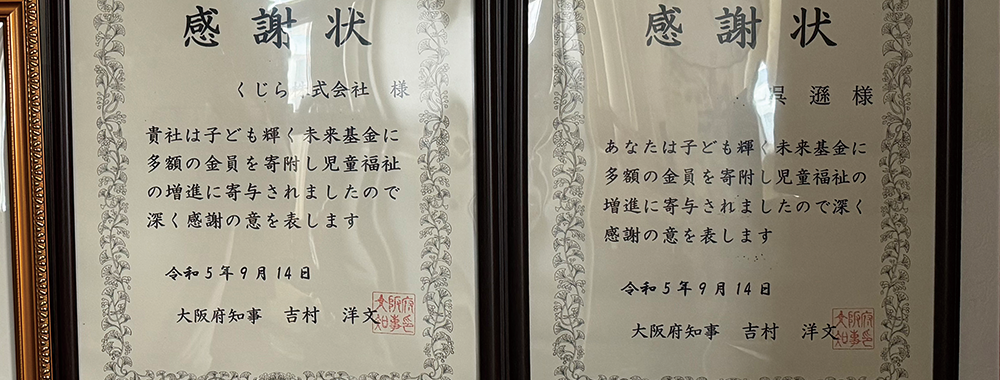 感謝状
くじら 式会社 様
貴社は子ども輝く未来基金に
多額の金員を寄附し児童福祉
の増進に寄与されましたので
深く感謝の意を表します
令和5年9月14日
大阪府知事 吉村 洋文
感謝状
呉 遜 様
あなたは子ども輝く未来基金に
多額の金員を寄附し児童福祉の
増進に寄与されましたので深く
感謝の意を表します
令和5年9月14日
大阪府知事 吉村 洋文